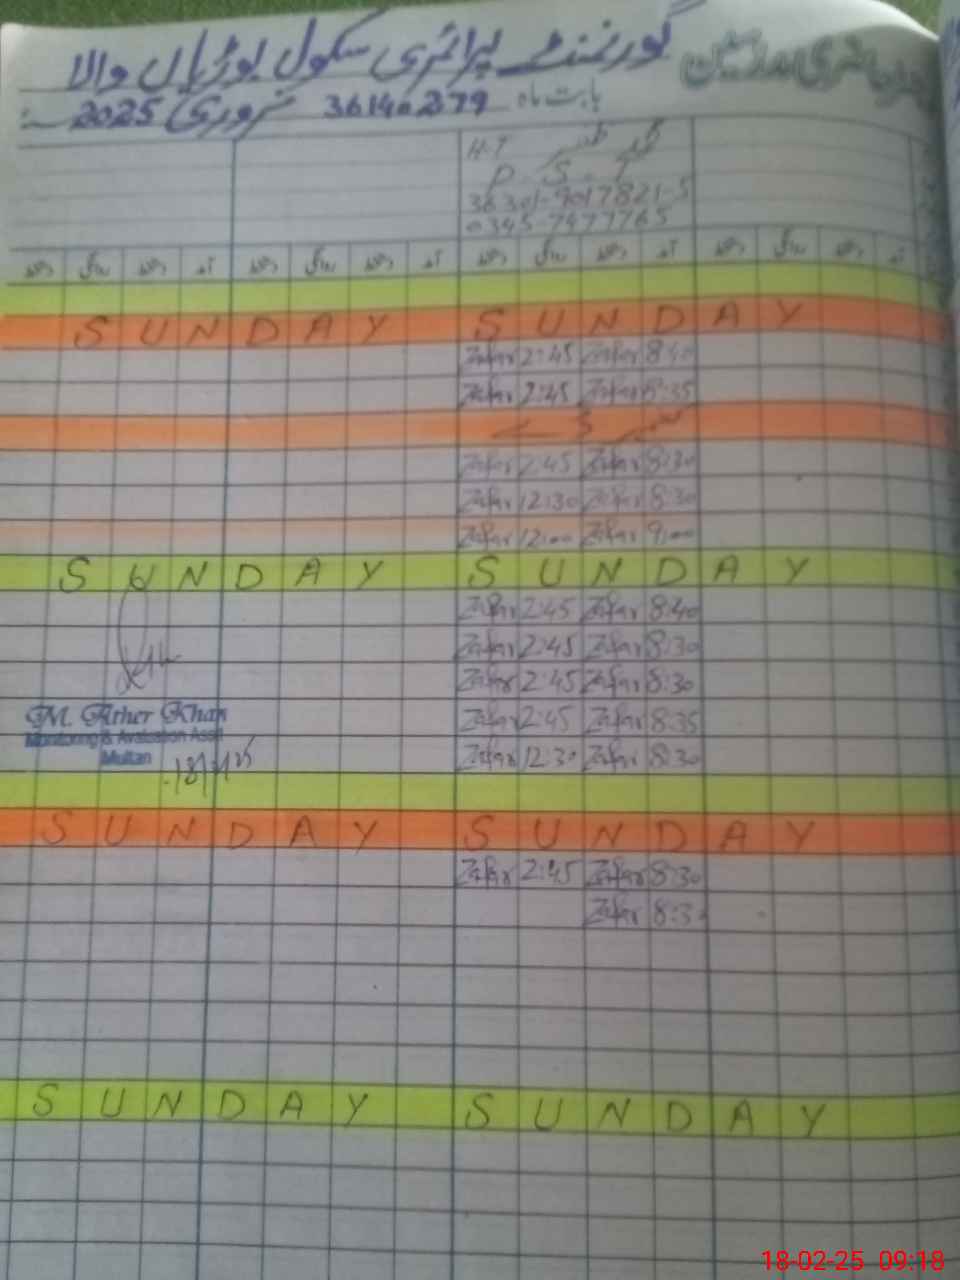 گورنمنٹ پرائمری سکول بوڑیاں والا
بابت ماہ 36140279 فروری 2025
H.T
P.S.T
36301-9017821-5
0345-7477765
دستخط روانگی دستخط آمد دستخط روانگی دستخط آمد دستخط روانگی دستخط آمد دستخط روانگی دستخط آمد
SUNDAY SUNDAY
Zafar 2:45 Zafar 8:40
Zafar 2:45 Zafar 8:35
Zafar 2:45 Zafar 8:30
Zafar 12:30 Zafar 8:30
Zafar 12:00 Zafar 9:00
SUNDAY SUNDAY
Zafar 2:45 Zafar 8:40
Zafar 2:45 Zafar 8:30
Zafar 2:45 Zafar 8:30
M. Ather Khan Zafar 2:45 Zafar 8:35
Monitoring & Avaluation Asstt
Multan Zafar 12:30 Zafar 8:30
SUNDAY SUNDAY
Zafar 2:45 Zafar 8:30
Zafar 8:30
SUNDAY SUNDAY
18-02-25 09:18